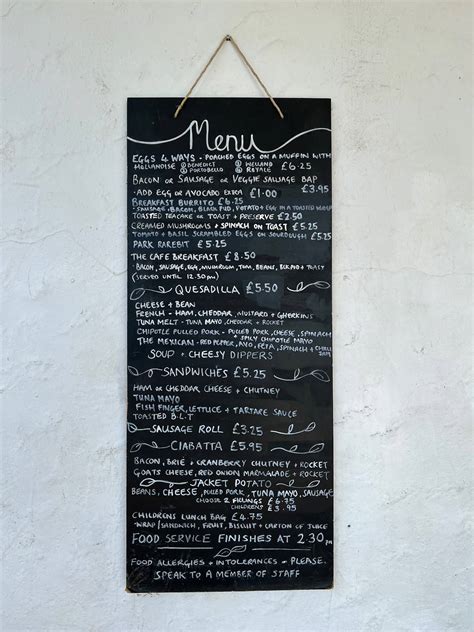 Menu
EGGS 4 WAYS - POACHED EGGS ON A MUFFIN WITH
HOLLANDISE ① BENEDICT ③ WELLAND £6.25
② PORTOBELLO ④ ROYALE
BACON OR SAUSAGE OR VEGGIE SAUSAGE BAP
£3.95
- ADD EGG OR AVOCADO EXTRA £1.00
BREAKFAST BURRITO £6.25
- SAUSAGE, BACON, BLACK PUD, POTATO + EGG IN A TOASTED
TOASTED TEACAKE OR TOAST + PRESERVE £2.50
CREAMED MUSHROOMS + SPINACH ON TOAST £5.25
TOMATO + BASIL SCRAMBLED EGGS ON SOURDOUGH £5.25
PARK RAREBIT £5.25
THE CAFE BREAKFAST £8.50
- BACON, SAUSAGE, EGG, MUSHROOM, TOM, BEANS,
(SERVED UNTIL 12.30PM)
QUESADILLA £5.50
CHEESE + BEAN
FRENCH - HAM, CHEDDAR, MUSTARD + GHERKINS
TUNA MELT - TUNA MAYO, CHEDDAR + ROCKET
CHIPOTLE PULLED PORK - PULLED PORK, CHEESE, SPINACH
+ SPICY CHIPOTLE MAYO
THE MEXICAN - RED PEPPER, AVO, FETA, SPINACH + CHILLI
JAM
SOUP + CHEESY DIPPERS
SANDWICHES £5.25
HAM OR CHEDDAR, CHEESE + CHUTNEY
TUNA MAYO
FISH FINGER, LETTUCE + TARTARE SAUCE
TOASTED B.L.T
SAUSAGE ROLL £3.25
CIABATTA £5.95
BACON, BRIE + CRANBERRY CHUTNEY + ROCKET
GOATS CHEESE, RED ONION MARMALADE + ROCKET
JACKET POTATO
BEANS, CHEESE, PULLED PORK, TUNA MAYO, SAUSAGE
CHOOSE 2 FILLINGS £6.75
CHILDRENS £3.95
CHILDRENS LUNCH BAG £4.75
- WRAP/SANDWICH, FRUIT, BISCUIT + CARTON OF JUICE
FOOD SERVICE FINISHES AT 2.30 PM
FOOD ALLERGIES + INTOLERANCES - PLEASE
SPEAK TO A MEMBER OF STAFF